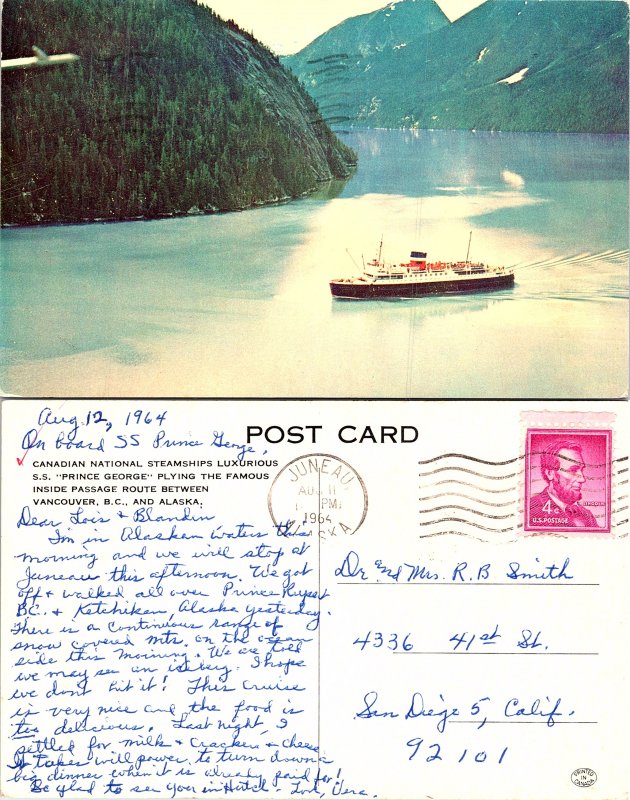 Aug 12, 1964
On board SS Prince George,
POST CARD
CANADIAN NATIONAL STEAMSHIPS LUXURIOUS
S.S. "PRINCE GEORGE" PLYING THE FAMOUS
INSIDE PASSAGE ROUTE BETWEEN
VANCOUVER, B.C., AND ALASKA.
Dear Lois + Blandin
I'm in Alaskan waters this
morning and we will stop at
Juneau this afternoon. We got
off + walked all over Prince Rupert
BC. + Ketchikan, Alaska yesterday.
There is a continuous range of
snow covered mts. on the ocean
side this morning. We are told
we may see an iceberg. I hope
we dont hit it! This cruise
is very nice and the food is
too delicious. Last night, I
settled for milk + crackers + cheese
It takes will power to turn down a
big dinner when it is already paid for!
Be glad to see you in Hitch - Love, Vera.
JUNEAU
AUG 11
PM
1964
ALASKA
LINCOLN
4¢
U.S. POSTAGE
Dr and Mrs. R. B Smith
4336 41st St.
San Diego 5, Calif.
92101
PRINTED
IN
CANADA